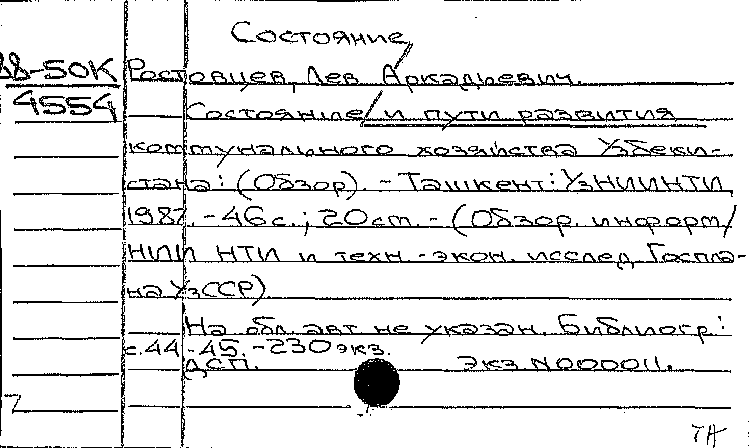 Состояние
88-50К Ростовцев, Лев Аркадьевич.
4554 Состояние/и пути развития
коммунального хозяйства Узбеки-
стана: (Обзор). - Ташкент: УзНИИНТИ,
1987. - 46 с.; 20 см. - (Обзор. информ/
НИИ НТИ и техн.-экон. исслед. Госпла-
на УзССР)
На обл. авт. не указан. Библиогр.:
с.44-45. - 230 экз.
ДСП. Экз. N000011.